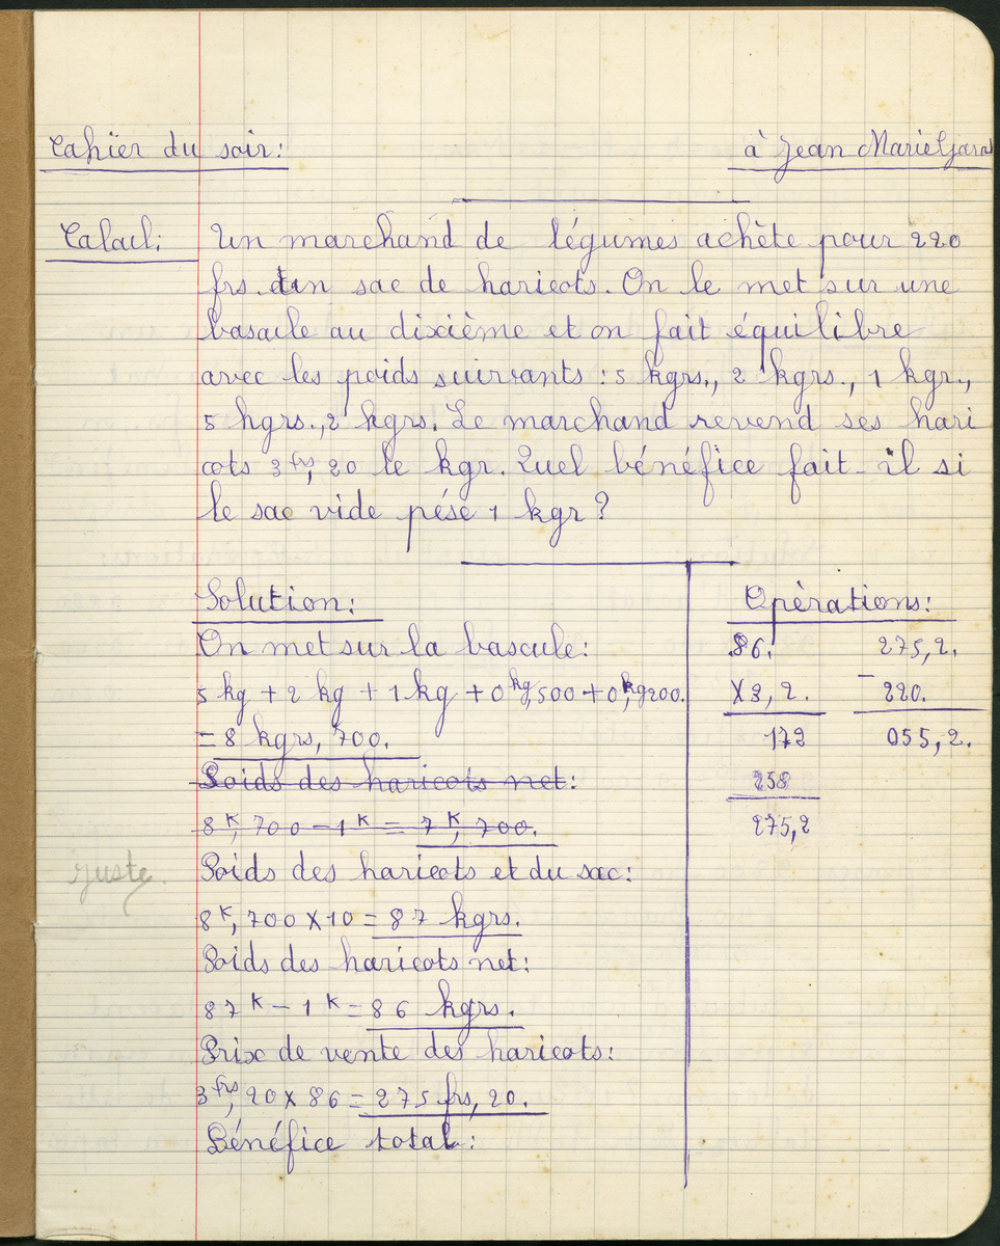 Cahier du soir:
à Jean Marie Garat
Calcul:
Un marchand de légumes achète pour 220
frs. un sac de haricots. On le met sur une
bascule au dixième et on fait équilibre
avec les poids suivants : 5 kgrs., 2 kgrs., 1 kgr.,
5 hgrs., 2 hgrs. Le marchand revend ses hari
cots 3 frs, 20 le kgr. Quel bénéfice fait-il si
le sac vide pése 1 kgr?
Solution:
On met sur la bascule:
5 kg + 2 kg + 1 kg + 0 kg,500 + 0 kg,200.
= 8 kgrs, 700.
Poids des haricots net:
8 K, 700 - 1 K = 7 K, 700.
juste
Poids des haricots et du sac:
8 K, 700 X 10 = 87 kgrs.
Poids des haricots net:
87 K - 1 K = 86 kgrs.
Prix de vente des haricots:
3 frs, 20 x 86 = 275 frs, 20.
Bénéfice total:
Opèrations:
86.
X 3, 2.
172
258
275,2
275,2.
- 220.
055,2.